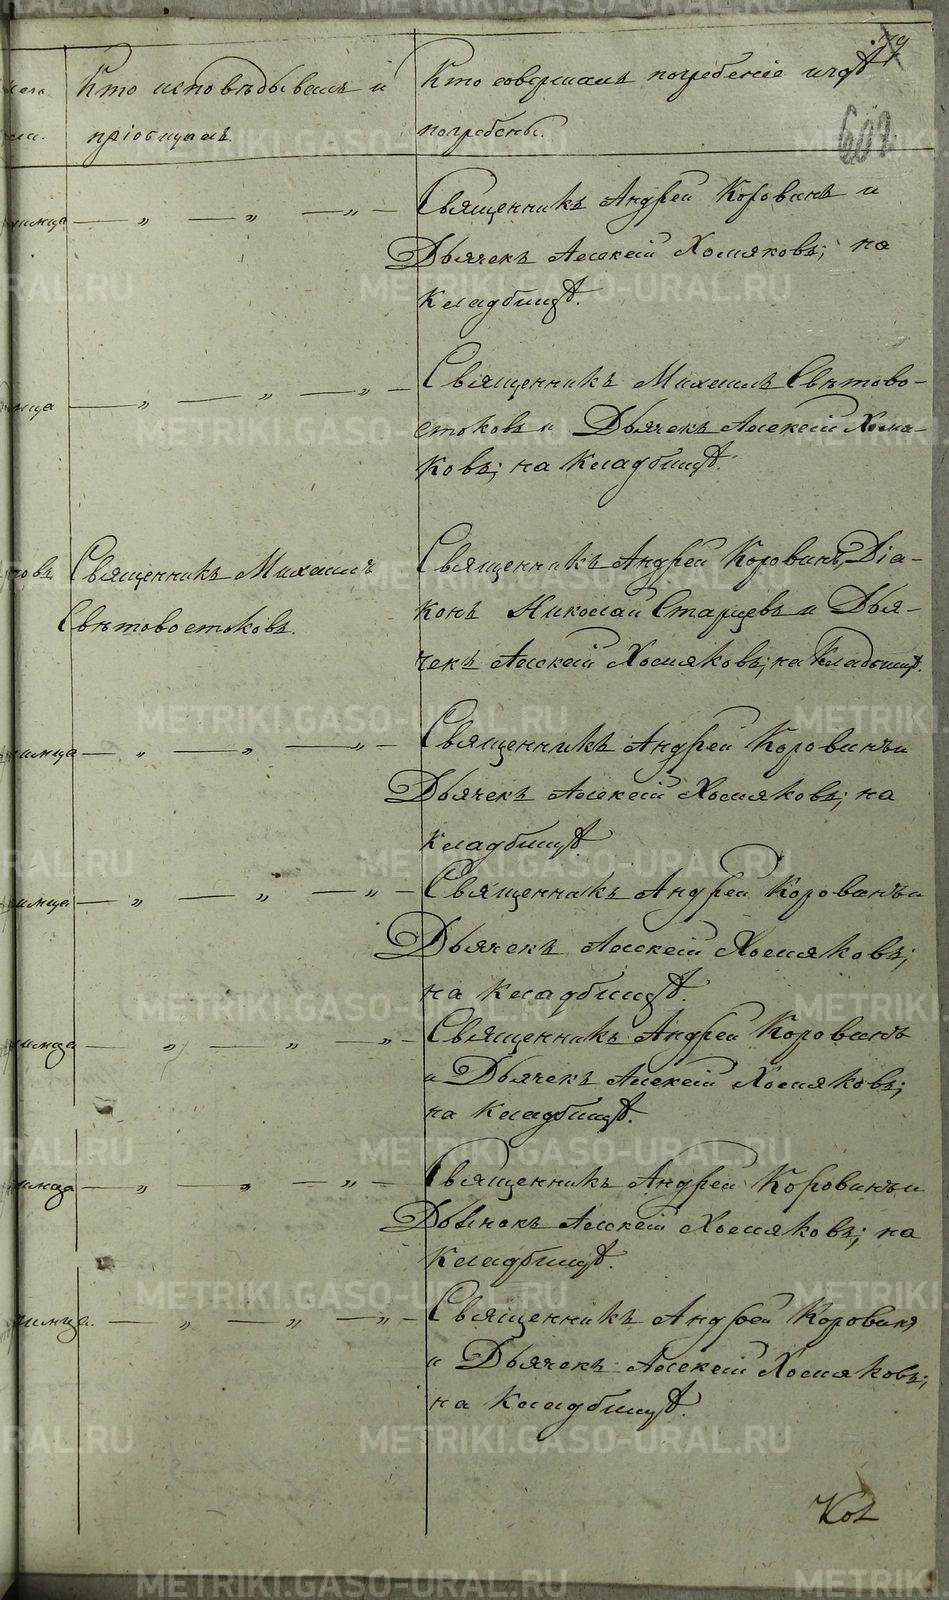 79
602
Кто исповѣдывалъ и
пріобщалъ.
Кто совершалъ погребеніе и гдѣ
погребены.
Священникъ Андрей Коровинъ и
Дьячекъ Алексѣй Хомяковъ; на
кладбищѣ.
Священникъ Михаилъ Свѣтово-
стоковъ и Дьячекъ Алексѣй Хомя-
ковъ; на кладбищѣ.
Священникъ Михаилъ
Свѣтовостоковъ.
Священникъ Андрей Коровинъ, Діа-
конъ Николай Старцевъ и Дья-
чекъ Алексѣй Хомяковъ; на кладбищѣ.
Священникъ Андрей Коровинъ и
Дьячекъ Алексѣй Хомяковъ; на
кладбищѣ
Священникъ Андрей Коровинъ и
Дьячекъ Алексѣй Хомяковъ;
на кладбищѣ.
Священникъ Андрей Коровинъ
и Дьячекъ Алексѣй Хомяковъ;
на кладбищѣ.
Священникъ Андрей Коровинъ и
Дьячекъ Алексѣй Хомяковъ; на
кладбищѣ.
Священникъ Андрей Коровинъ
и Дьячекъ Алексѣй Хомяковъ;
на кладбищѣ.
METRIKI.GASO-URAL.RU